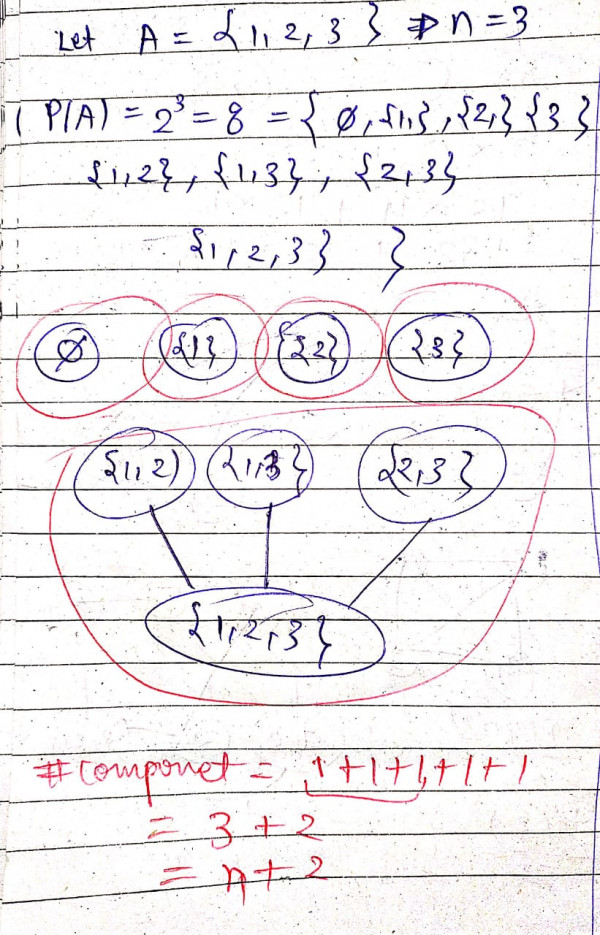 Let A = {1, 2, 3} ⇒ n = 3
( P(A) = 2³ = 8 = { ∅, {1,}, {2,} {3}
{1, 2}, {1, 3}, {2, 3}
{1, 2, 3} }
∅ {1} {2} {3}
{1, 2) {1, 3} {2, 3}
{1, 2, 3}
# componet = 1 + 1 + 1 + 1 + 1
= 3 + 2
= n + 2